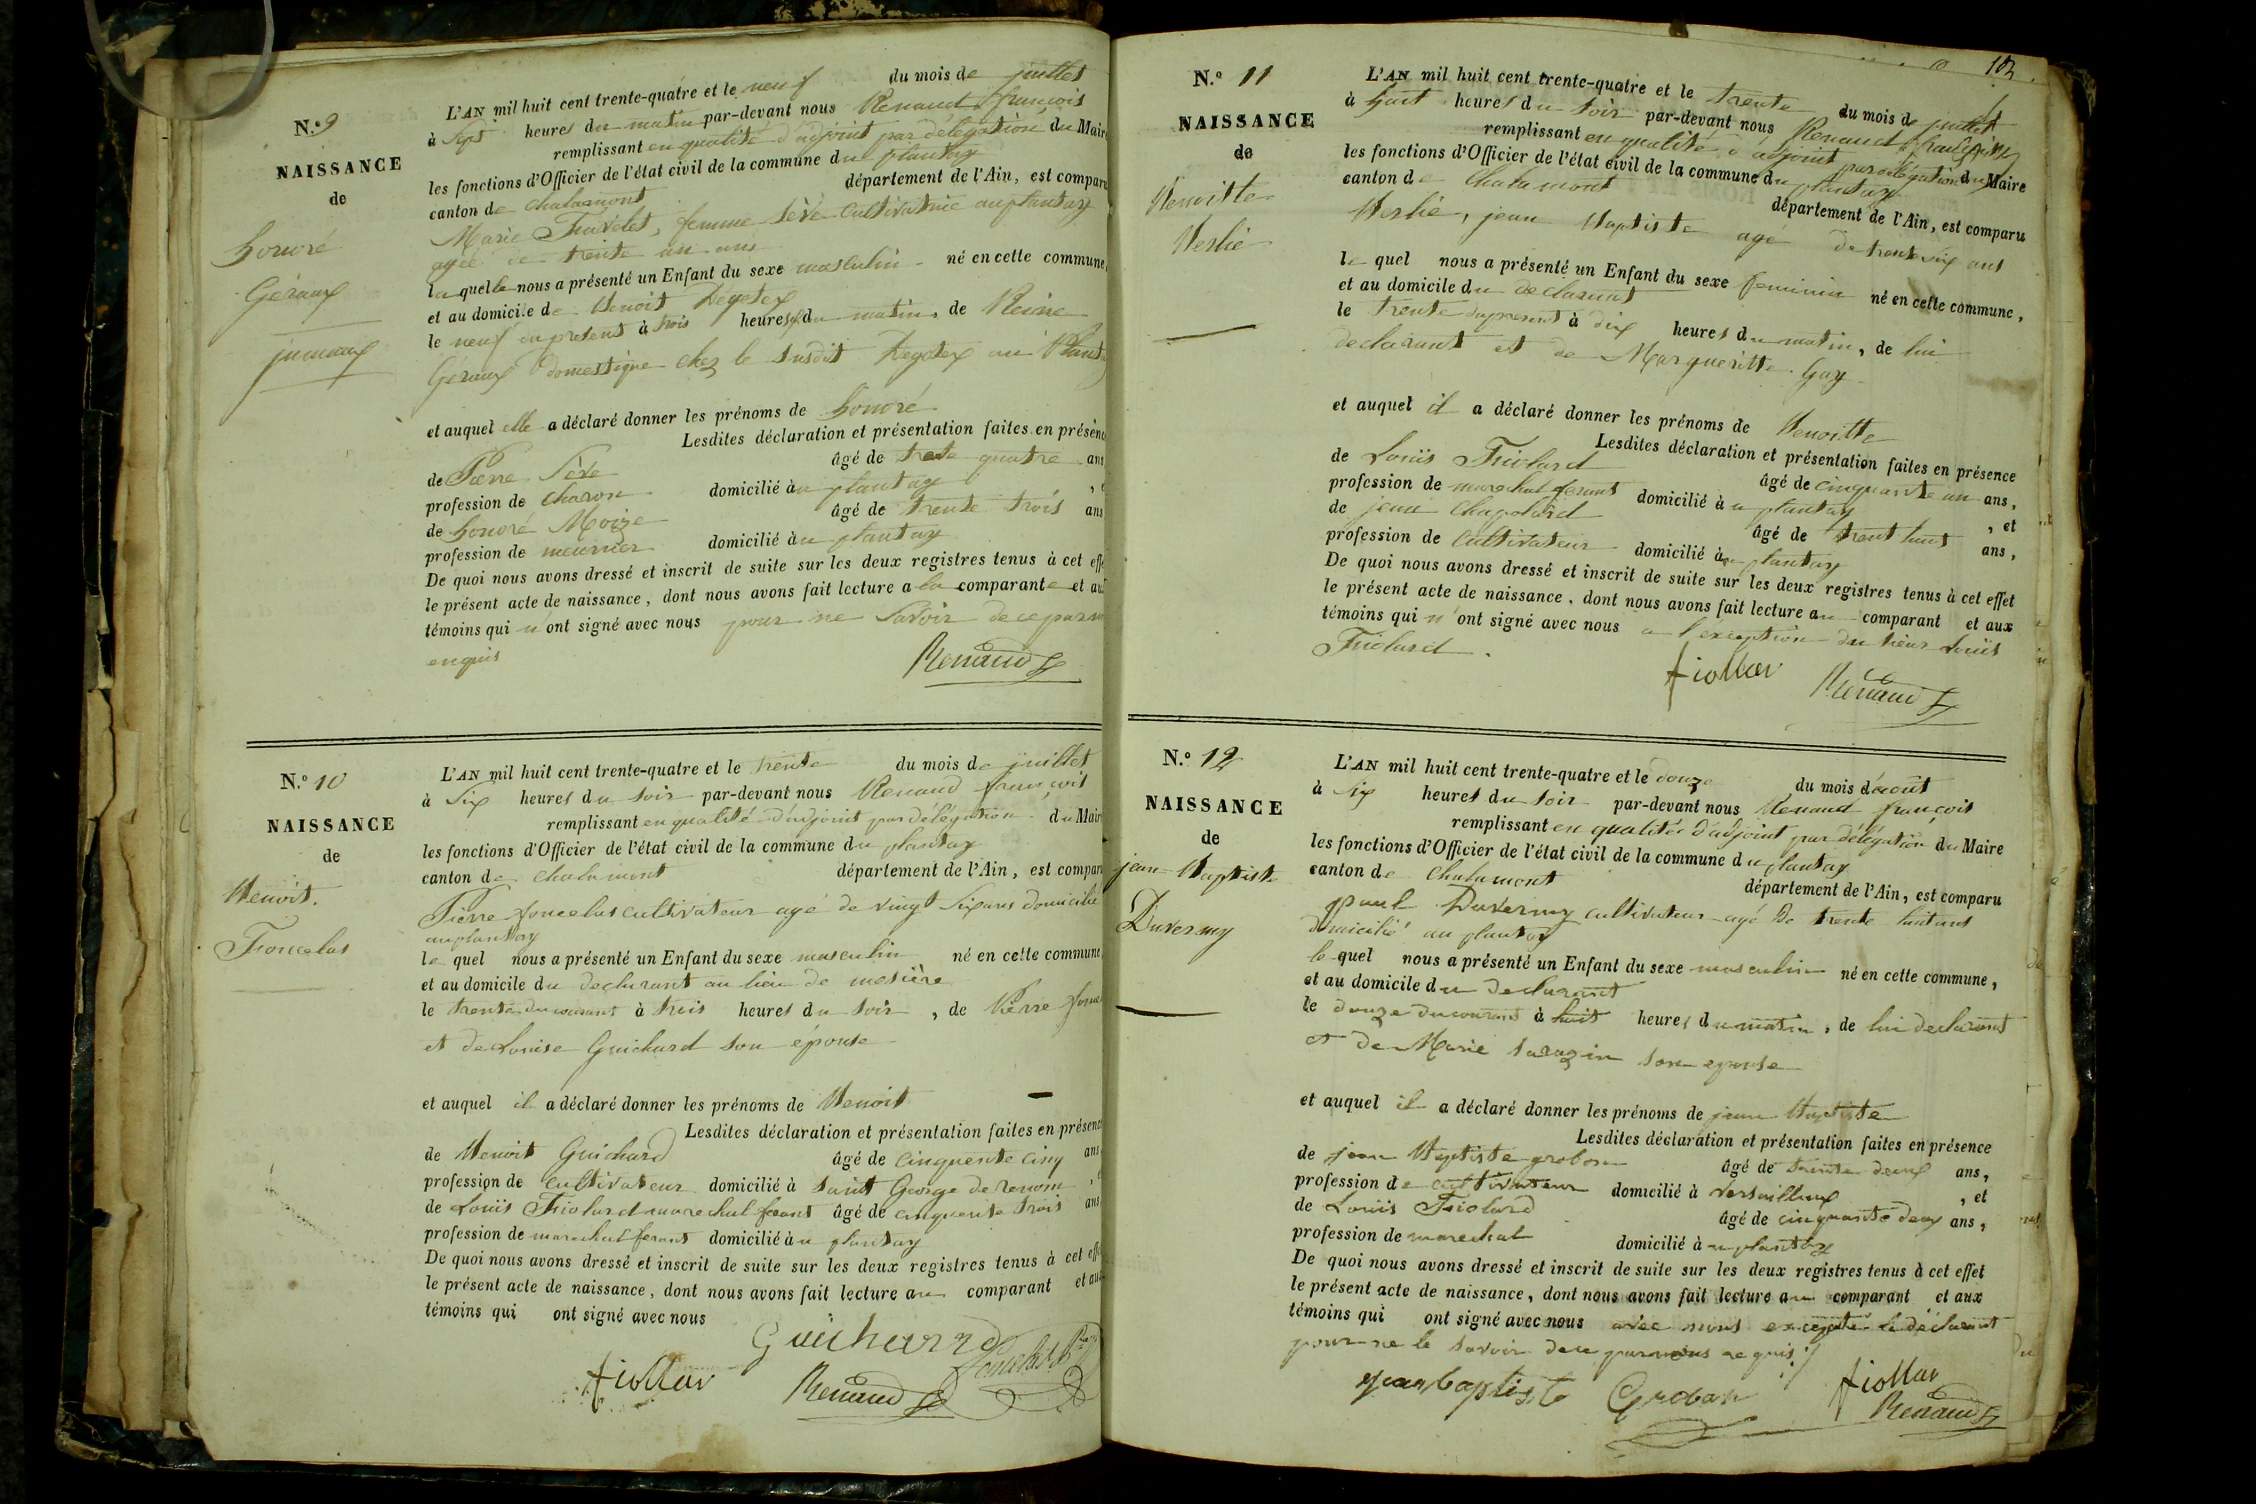 N.º 9
NAISSANCE
de
honoré
Géraux
jumeaux
L'AN mil huit cent trente-quatre et le neuf du mois de juillet
à sept heures du matin par-devant nous Renaud françois
remplissant en qualité d'adjoint par délégation du Maire
les fonctions d'Officier de l'état civil de la commune du plantay
canton de chalamont département de l'Ain, est comparu
Marie Travelet, femme Sève Cultivatrice au plantay
agée de trente un ans
la quelle nous a présenté un Enfant du sexe masculin né en cette commune,
et au domicile de Benoit
le neuf du présent à trois heures du matin, de Reine
Géraux domestique chez le susdit au Planta
et auquel elle a déclaré donner les prénoms de honoré
Lesdites déclaration et présentation faites en présence
de Pierre Sève âgé de trente quatre ans
profession de charon domicilié au plantay
de honoré Moize âgé de trente trois ans
profession de meunier domicilié au plantay
De quoi nous avons dressé et inscrit de suite sur les deux registres tenus à cet effe
le présent acte de naissance, dont nous avons fait lecture a la comparante et au
témoins qui n'ont signé avec nous pour ne savoir de ce par n
enquis
Renaud
N.º 10
NAISSANCE
de
Benoit.
Foncelas
L'AN mil huit cent trente-quatre et le trente du mois de juillet
à six heures du soir par-devant nous Renaud françois
remplissant en qualité d'adjoint par délégation du Maire
les fonctions d'Officier de l'état civil de la commune du plantay
canton de chalamont département de l'Ain, est compar
Pierre foncelas cultivateur agé de vingt six ans domicilié
au plantay
le quel nous a présenté un Enfant du sexe masculin né en cette commune,
et au domicile du declarant au lieu de mesière
le trente du courant à trois heures du soir, de Pierre fonce
et de Louise Guichard son épouse
et auquel il a déclaré donner les prénoms de Benoit
Lesdites déclaration et présentation faites en présence
de Benoit Guichard âgé de cinquente cinq ans
profession de cultivateur domicilié à saint George de renom
de Louis Fiolard marechal ferant âgé de cinquente trois ans
profession de marechal ferant domicilié au plantay
De quoi nous avons dressé et inscrit de suite sur les deux registres tenus à cet effe
le présent acte de naissance, dont nous avons fait lecture au comparant et aux
témoins qui ont signé avec nous
Guichard
fiollar Renaud
N.º 11
NAISSANCE
de
Benoitte
Verlié
102
L'AN mil huit cent trente-quatre et le trente du mois de juillet
à huit heures du soir par-devant nous Renaud françois
remplissant en qualité d'adjoint par délégation du Maire
les fonctions d'Officier de l'état civil de la commune du plantay
canton de Chalamont département de l'Ain, est comparu
Verlié, jean Baptiste agé de trente six ans
le quel nous a présenté un Enfant du sexe feminin né en cette commune,
et au domicile du declarant
le trente du present à dix heures du matin, de lui
declarant et de Margueritte Gay
et auquel il a déclaré donner les prénoms de Benoitte
Lesdites déclaration et présentation faites en présence
de Louis Fiolard âgé de cinquante un ans,
profession de marechal ferant domicilié au plantay, et
de jean Chapolard âgé de trent huit ans,
profession de Cultivateur domicilié au plantay
De quoi nous avons dressé et inscrit de suite sur les deux registres tenus à cet effet
le présent acte de naissance, dont nous avons fait lecture au comparant et aux
témoins qui n'ont signé avec nous a l'exception du sieur Louis
Fiolard.
fiollar Renaud
N.º 12
NAISSANCE
de
jean Baptiste
Duverny
L'AN mil huit cent trente-quatre et le douze du mois d'août
à six heures du soir par-devant nous Renaud françois
remplissant en qualitée d'adjoint par délégation du Maire
les fonctions d'Officier de l'état civil de la commune du plantay
canton de Chalamont département de l'Ain, est comparu
paul Duverny cultivateur agé de trente huit ans
domicilié au plantay
le quel nous a présenté un Enfant du sexe masculin né en cette commune,
et au domicile du declarant
le douze du courant à huit heures du matin, de lui declarant
et de Marie sarazin son epouse
et auquel il a déclaré donner les prénoms de jean Baptiste
Lesdites déclaration et présentation faites en présence
de jean Baptiste grobon âgé de trente deux ans,
profession de cultivateur domicilié à versailleux, et
de Louis Fiolard âgé de cinquante deux ans,
profession de marechal domicilié au plantay
De quoi nous avons dressé et inscrit de suite sur les deux registres tenus à cet effet
le présent acte de naissance, dont nous avons fait lecture au comparant et aux
témoins qui ont signé avec nous avec nous excepté le déclarant
pour ne le savoir de ce par nous requis
jean baptiste Groban fiollar
Renaud